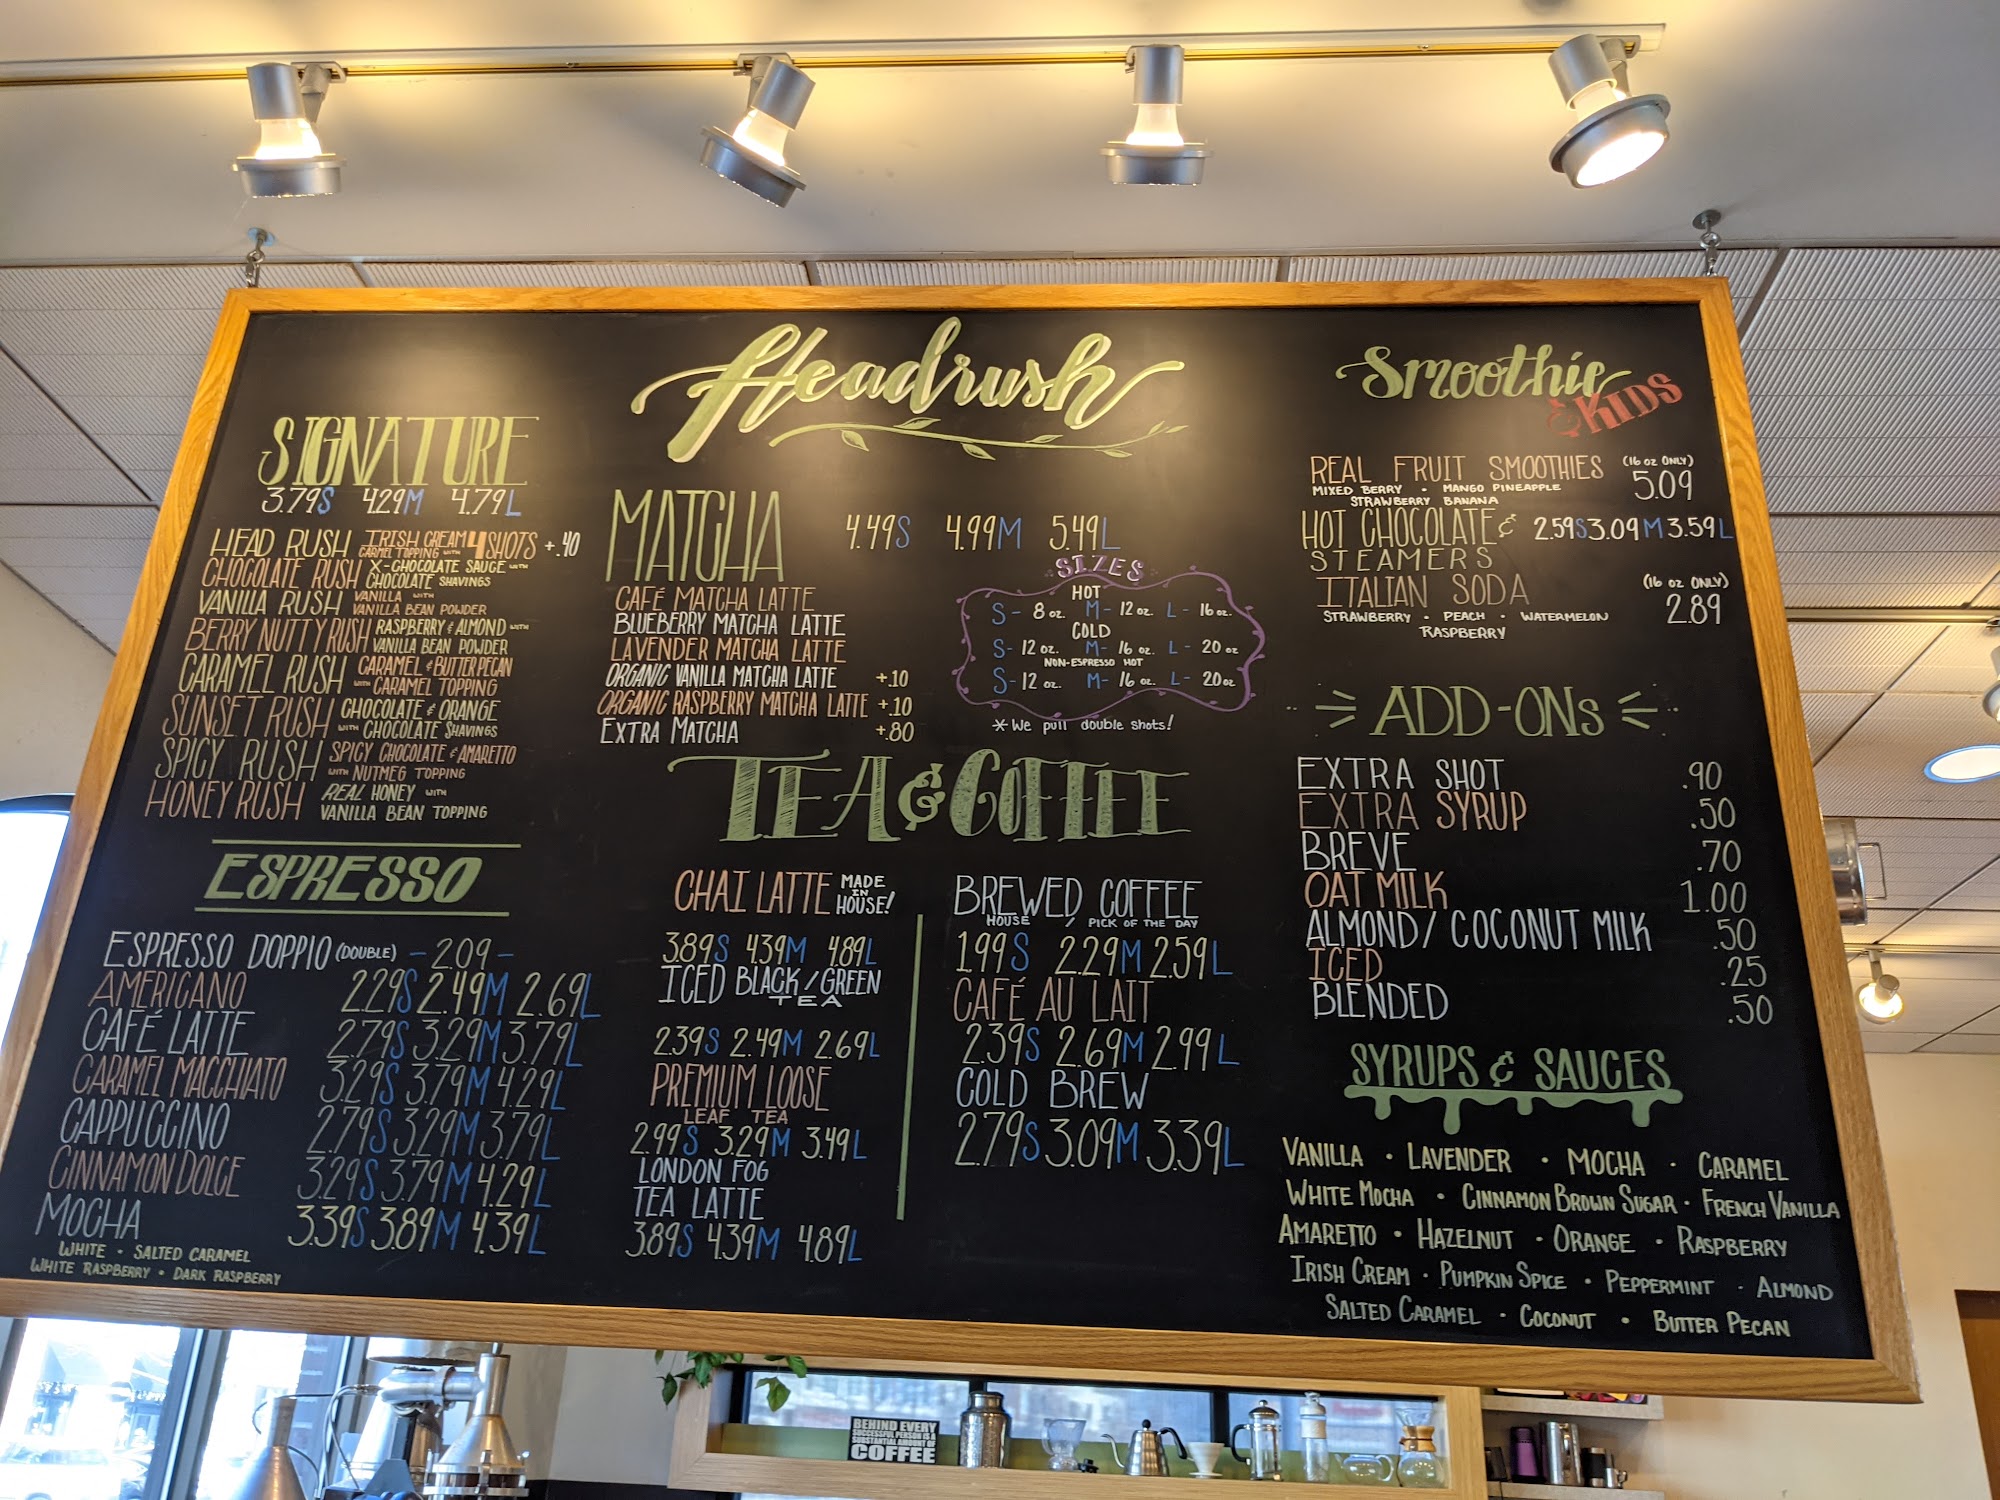 Headrush
SIGNATURE
3.79S 4.29M 4.79L
HEAD RUSH IRISH CREAM 4 SHOTS +.40
CARMEL TOPPING WITH
CHOCOLATE RUSH X-CHOCOLATE SAUCE WITH
CHOCOLATE SHAVINGS
VANILLA RUSH VANILLA WITH
VANILLA BEAN POWDER
BERRY NUTTY RUSH RASPBERRY & ALMOND WITH
VANILLA BEAN POWDER
CARAMEL RUSH CARAMEL & BUTTER PECAN
WITH CARAMEL TOPPING
SUNSET RUSH CHOCOLATE & ORANGE
WITH CHOCOLATE SHAVINGS
SPICY RUSH SPICY CHOCOLATE & AMARETTO
WITH NUTMEG TOPPING
HONEY RUSH REAL HONEY WITH
VANILLA BEAN TOPPING
ESPRESSO
ESPRESSO DOPPIO (DOUBLE) - 2.09 -
AMERICANO 2.29S 2.49M 2.69L
CAFÉ LATTE 2.79S 3.29M 3.79L
CARAMEL MACCHIATO 3.29S 3.79M 4.29L
CAPPUCCINO 2.79S 3.29M 3.79L
CINNAMON DOLCE 3.29S 3.79M 4.29L
MOCHA 3.39S 3.89M 4.39L
WHITE • SALTED CARAMEL
WHITE RASPBERRY • DARK RASPBERRY
MATCHA 4.49S 4.99M 5.49L
CAFÉ MATCHA LATTE
BLUEBERRY MATCHA LATTE
LAVENDER MATCHA LATTE
ORGANIC VANILLA MATCHA LATTE +.10
ORGANIC RASPBERRY MATCHA LATTE +.10
EXTRA MATCHA +.80
SIZES
HOT
S- 8 oz. M- 12 oz. L- 16 oz.
COLD
S- 12 oz. M- 16 oz. L- 20 oz
NON-ESPRESSO HOT
S- 12 oz. M- 16 oz. L- 20 oz
*We pull double shots!
TEA & COFFEE
CHAI LATTE MADE IN HOUSE!
3.89S 4.39M 4.89L
ICED BLACK/GREEN
TEA
2.39S 2.49M 2.69L
PREMIUM LOOSE
LEAF TEA
2.99S 3.29M 3.49L
LONDON FOG
TEA LATTE
3.89S 4.39M 4.89L
BREWED COFFEE
HOUSE / PICK OF THE DAY
1.99S 2.29M 2.59L
CAFÉ AU LAIT
2.39S 2.69M 2.99L
COLD BREW
2.79S 3.09M 3.39L
Smoothie
& KIDS
REAL FRUIT SMOOTHIES (16 oz ONLY)
MIXED BERRY • MANGO PINEAPPLE 5.09
STRAWBERRY BANANA
HOT CHOCOLATE & 2.59S 3.09M 3.59L
STEAMERS
ITALIAN SODA (16 oz ONLY)
STRAWBERRY • PEACH • WATERMELON 2.89
RASPBERRY
ADD-ONs
EXTRA SHOT .90
EXTRA SYRUP .50
BREVE .70
OAT MILK 1.00
ALMOND/COCONUT MILK .50
ICED .25
BLENDED .50
SYRUPS & SAUCES
VANILLA • LAVENDER • MOCHA • CARAMEL
WHITE MOCHA • CINNAMON BROWN SUGAR • FRENCH VANILLA
AMARETTO • HAZELNUT • ORANGE • RASPBERRY
IRISH CREAM • PUMPKIN SPICE • PEPPERMINT • ALMOND
SALTED CARAMEL • COCONUT • BUTTER PECAN
BEHIND EVERY
SUCCESSFUL PERSON IS A
SUBSTANTIAL AMOUNT OF
COFFEE